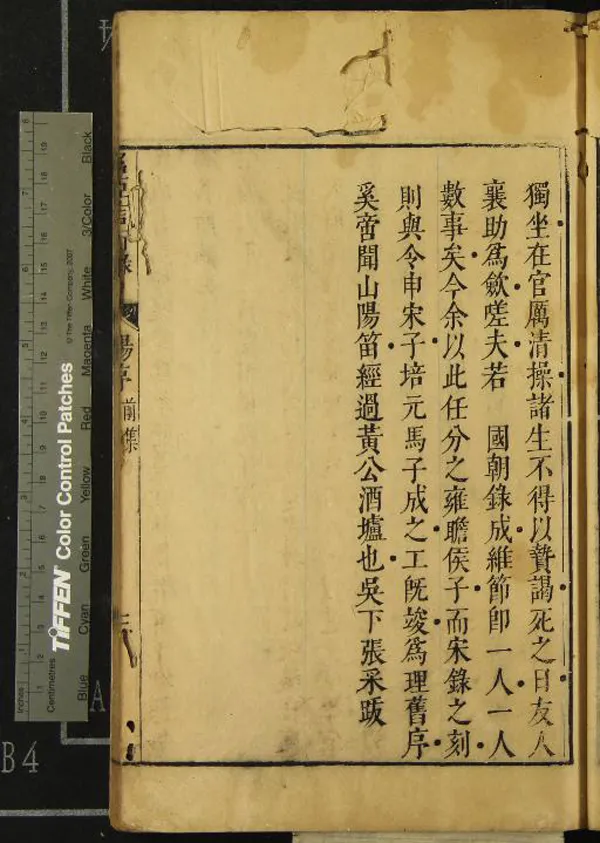 獨坐在官厲清操諸生不得以贄謁死之日友人
襄助爲歛嗟夫若　國朝錄成維節卽一人一人
數事矣今余以此任分之雍瞻侯子而宋錄之刻
則與令申宋子培元馬子成之工旣竣爲理舊序
奚啻聞山陽笛經過黃公酒壚也吳下張采䟦
序 前集
Inches
Centimetres
TIFFEN Color Control Patches
© The Tiffen Company, 2007
Blue Cyan Green Yellow Red Magenta White 3/Color Black
B4
A